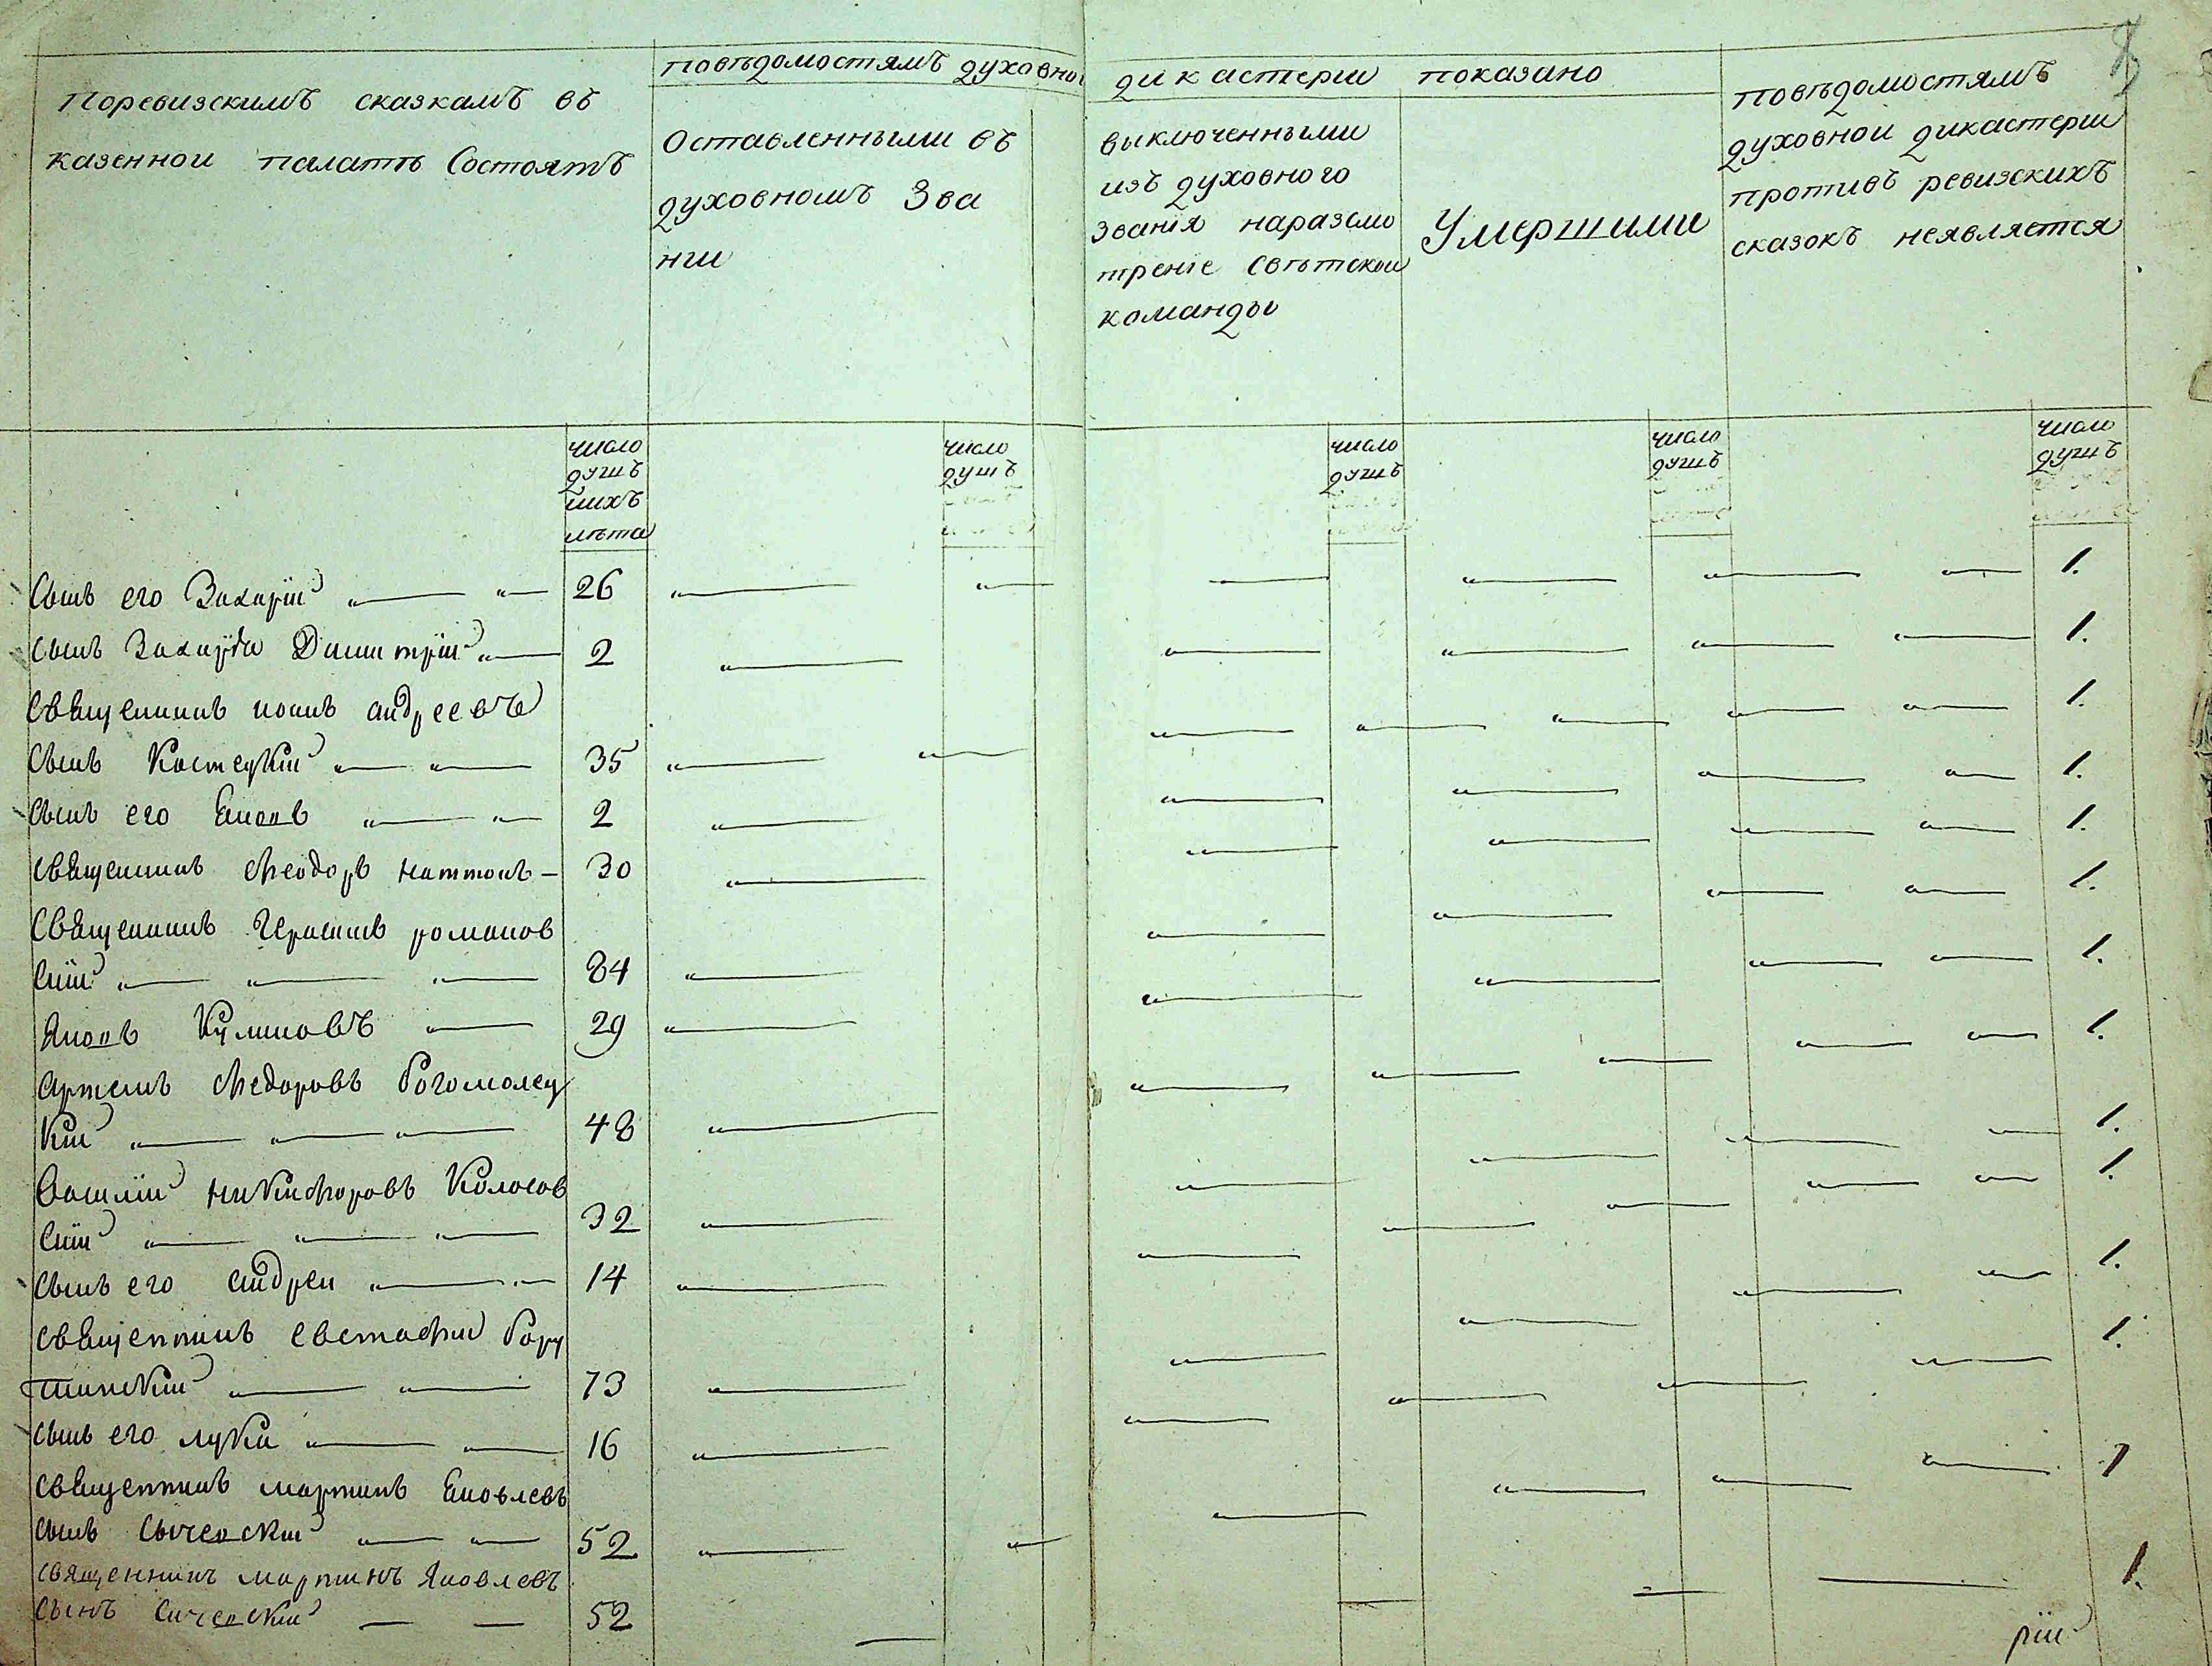 Поревизскимъ сказкамъ въ
казенной палатѣ Состоятъ
повѣдомостямъ духовной
дикастерии показано
Оставленными въ
духовномъ Зва
нии
выключенными
изъ духовного
званія наразсмо
трение свѣтской
команды
Умершими
повѣдомостямъ
духовной дикастерии
противъ ревизскихъ
сказокъ неявляется
число
душъ
ихъ
лѣта
число
душъ
число
душъ
число
душъ
число
душъ
Сынъ его Захарїй 26 1.
сынъ Захарїя Димитрїй 2 1.
Священникъ иоанъ андреевъ
Сынъ Костецкїй 35 1.
Сынъ его Яковъ 2 1.
священникъ Ѳеодоръ 30 1.
Священникъ Герасимъ романов
скїй 84 1.
Яковъ Куликовъ 29 1.
артемъ Федоровъ Богомолец
кїй 48 1.
Василїй никифоровъ Колосов
скїй 32 1.
Сынъ его андреи 14 1.
священникъ евстафии
73 1.
сынъ его лука 16 1.
священникъ мартинъ Яковлевъ
сынъ Сычевскїй 52 1
священникъ мартинъ Яковлевъ
Сынъ Сичевскїй 52 1.
рїй